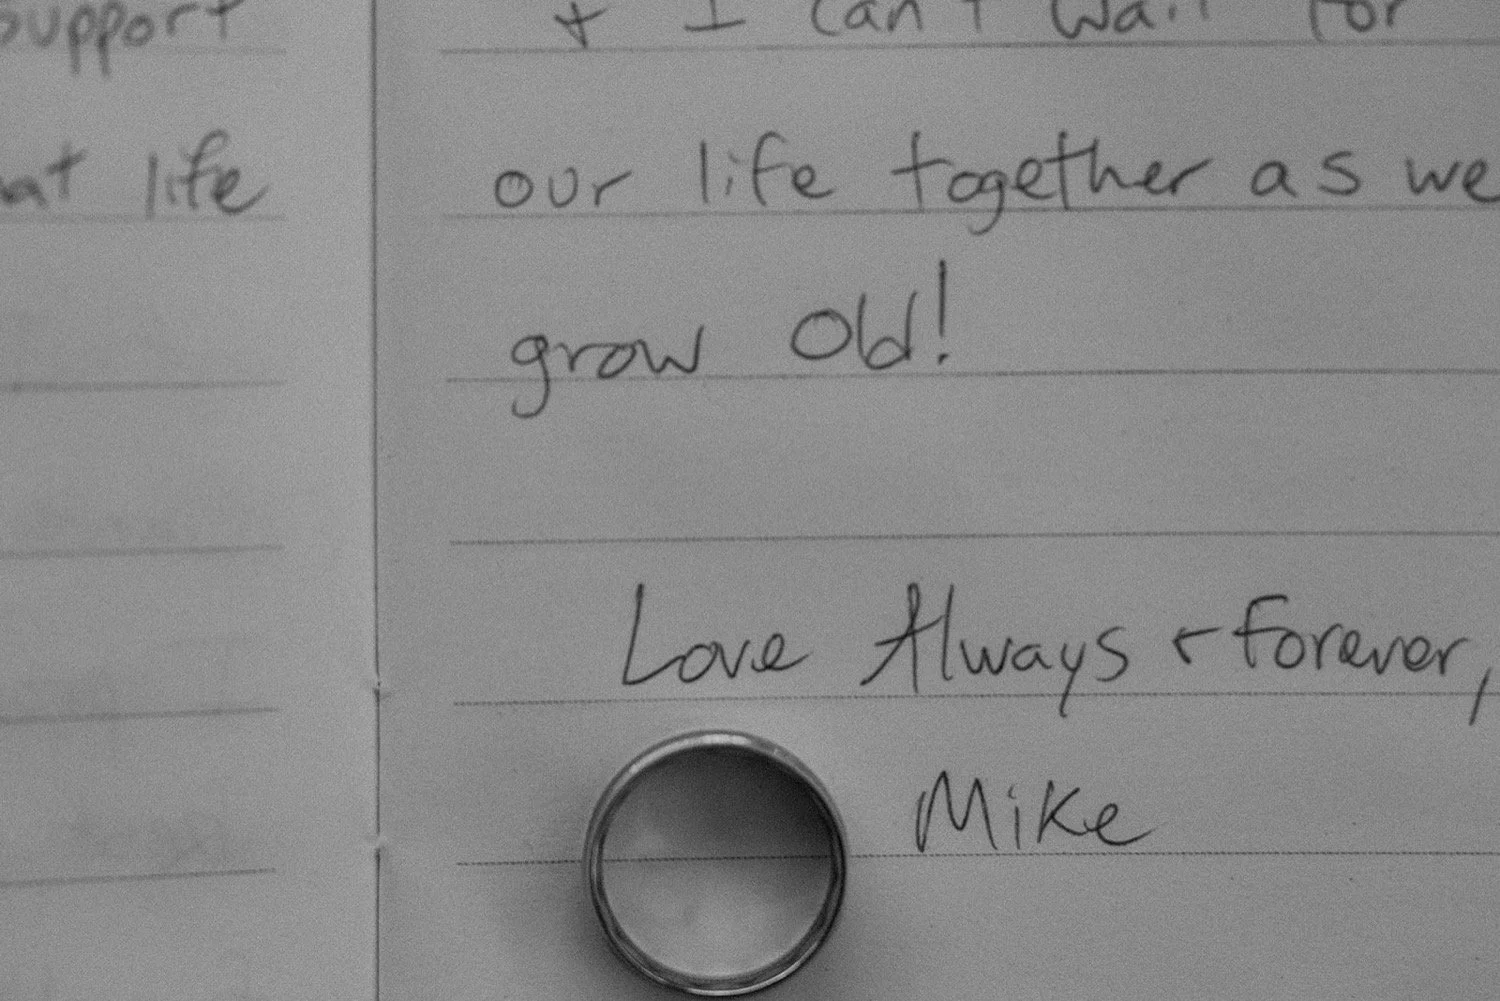 support
at life
+ I can't wait for
our life together as we
grow old!
Love Always + forever,
Mike